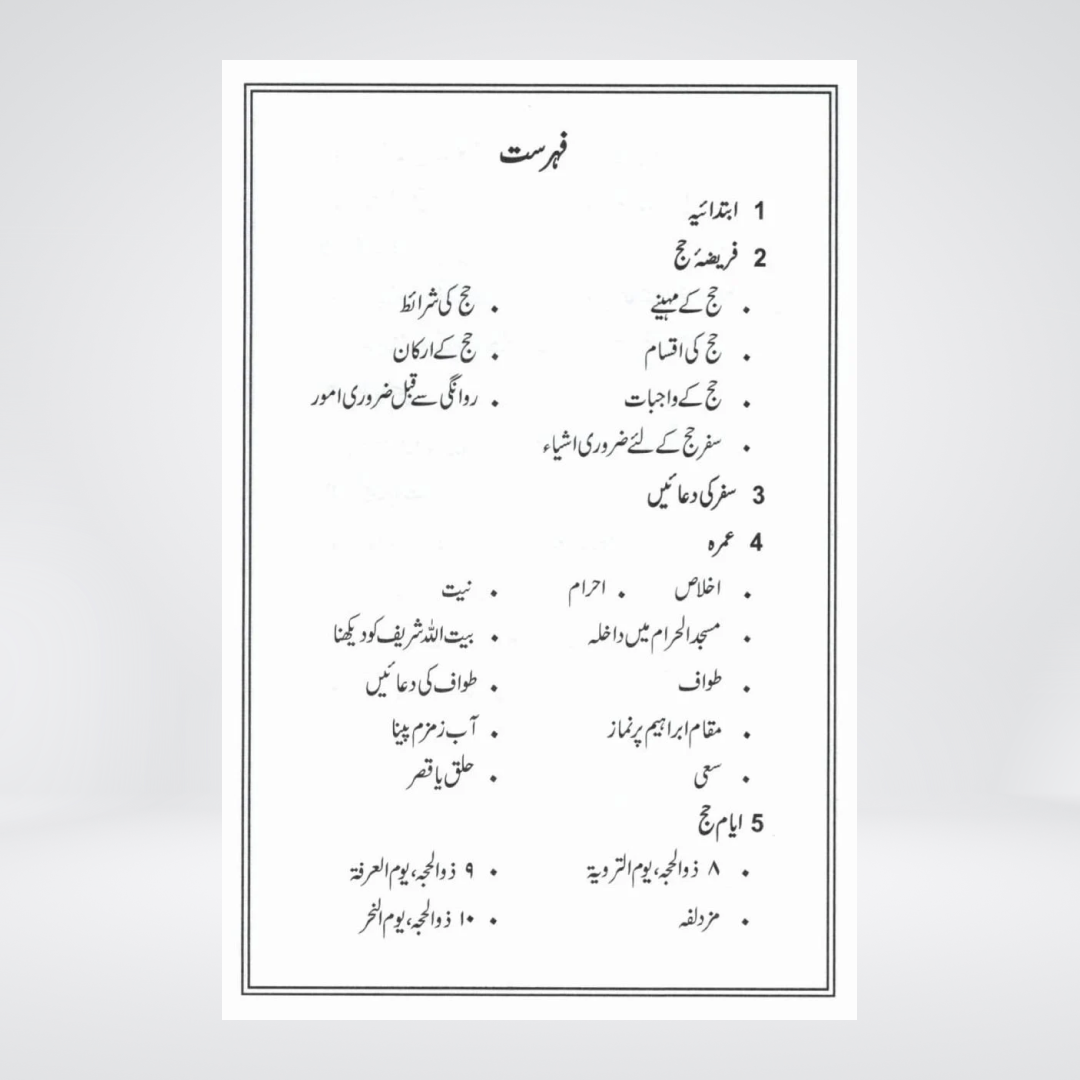 فہرست
1 ابتدائیہ
2 فریضۂ حج
• حج کے مہینے • حج کی شرائط
• حج کی اقسام • حج کے ارکان
• حج کے واجبات • روانگی سے قبل ضروری امور
• سفر حج کے لئے ضروری اشیاء
3 سفر کی دعائیں
4 عمرہ
• اخلاص • احرام • نیت
• مسجد الحرام میں داخلہ • بیت اللہ شریف کو دیکھنا
• طواف • طواف کی دعائیں
• مقام ابراہیم پر نماز • آب زمزم پینا
• سعی • حلق یا قصر
5 ایام حج
• ۸ ذوالحجہ، یوم الترویۃ • ۹ ذوالحجہ، یوم العرفۃ
• مزدلفہ • ۱۰ ذوالحجہ، یوم النحر